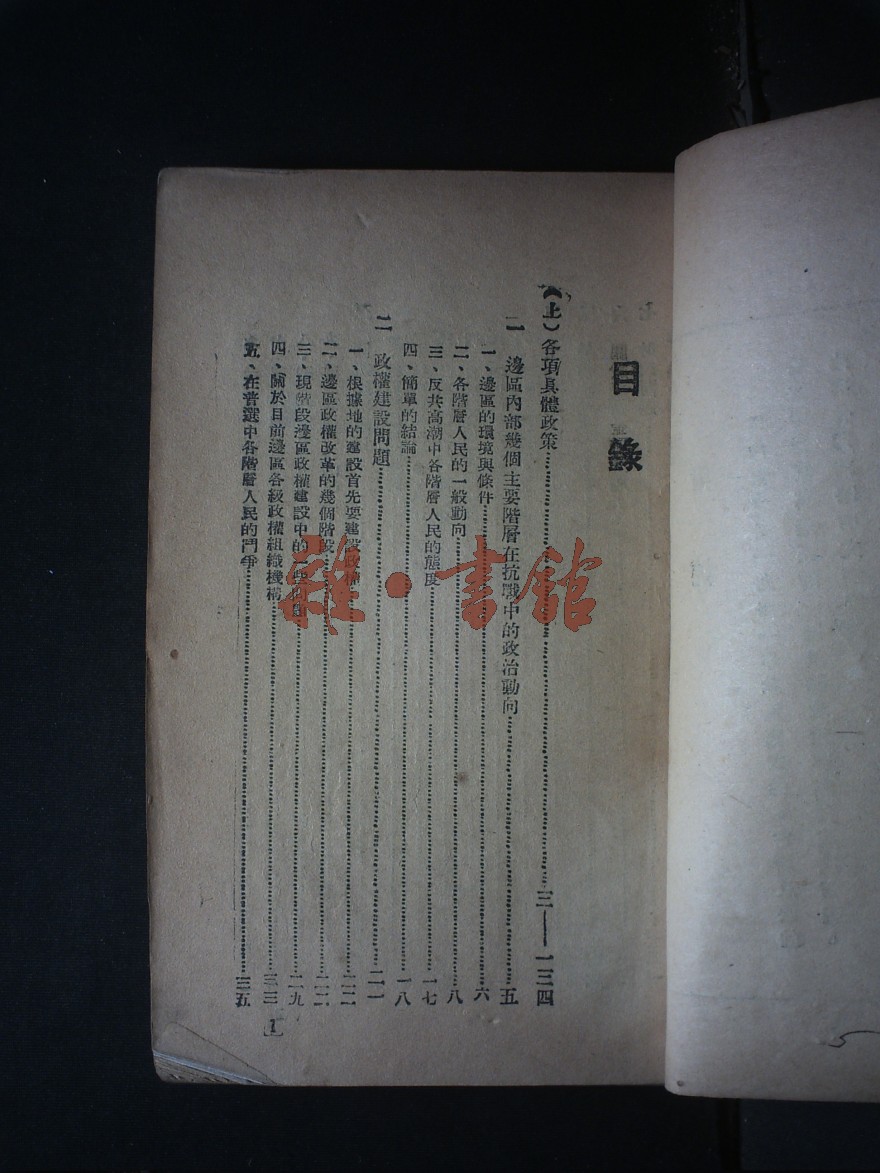 目錄
（上）各項具體政策……三——一三四
一 邊區內部幾個主要階層在抗戰中的政治動向……五
一、邊區的環境與條件……六
二、各階層人民的一般動向……八
三、反共高潮中各階層人民的態度……一七
四、簡單的結論……一八
二 政權建設問題……二一
一、根據地的建設首先要建設政權……二二
二、邊區政權改革的幾個階段……二二
三、現階段邊區政權建設中的一些問題……二九
四、關於目前邊區各級政權組織機構……三三
五、在普選中各階層人民的鬥爭……三五
1
雜·書館